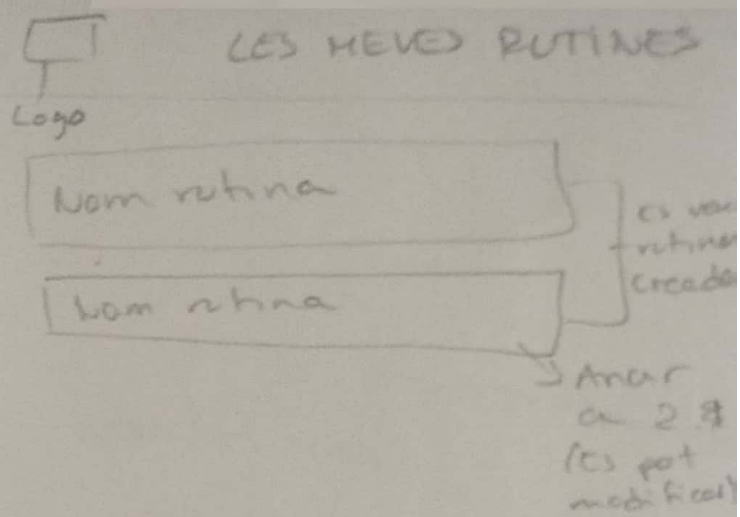 LES MEVES RUTINES
Logo
Nom rutina
Nom rutina
es veu
rutines
creades
Anar
a 2
(es pot
modificar)